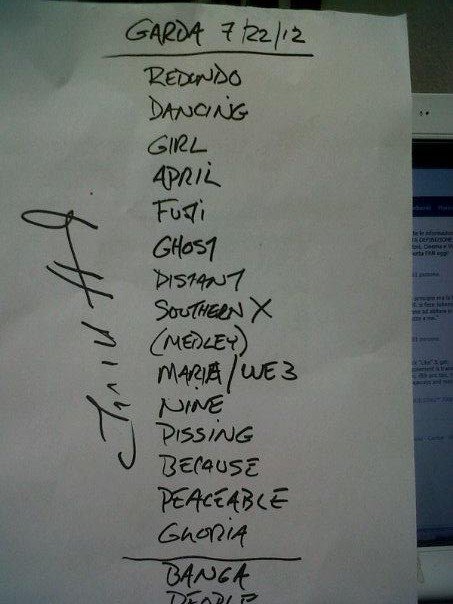 GARDA 7/22/12
REDONDO
DANCING
GIRL
APRIL
FUJI
GHOST
DISTANT
SOUTHERN X
(MEDLEY)
MARIA/WE 3
NINE
PISSING
BECAUSE
PEACEABLE
GLORIA
BANGA
PEOPLE